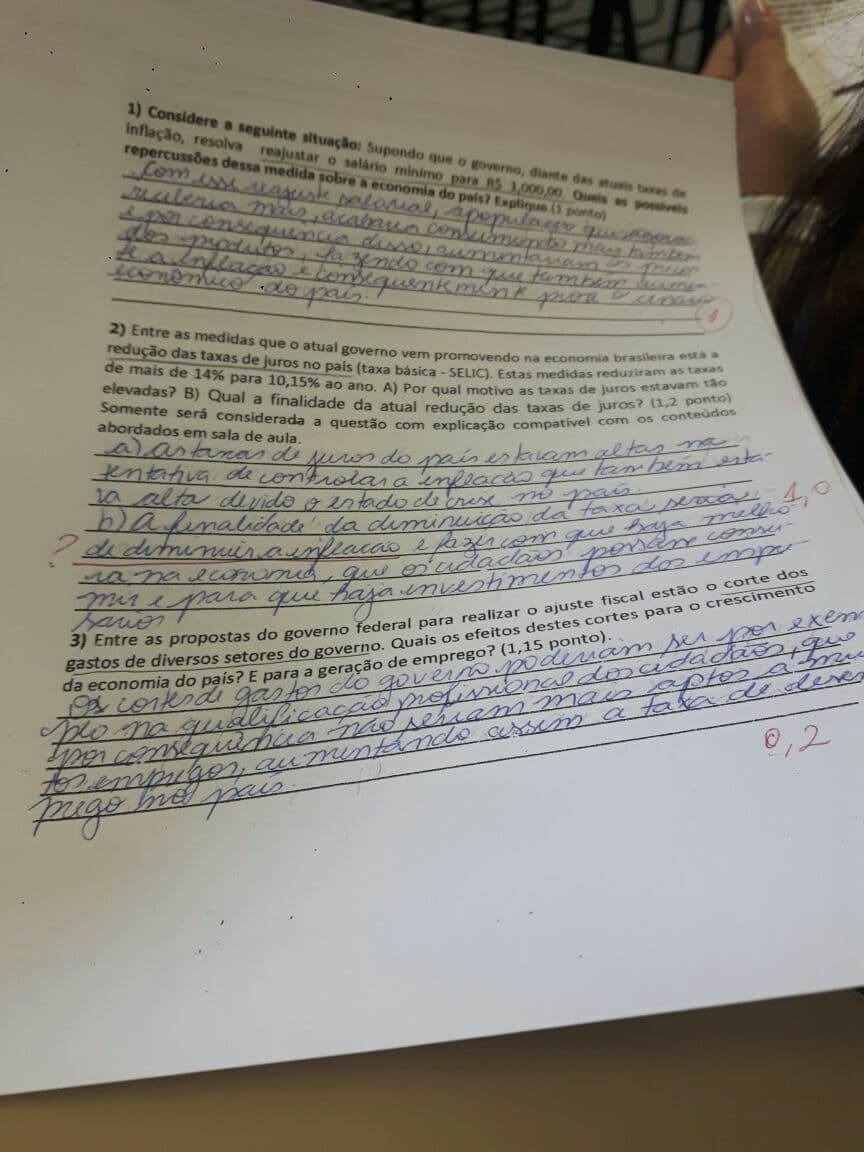 1) Considere a seguinte situação: Supondo que o governo, diante das atuais taxas de
inflação, resolva reajustar o salário mínimo para R$ 1.000,00. Quais as possíveis
repercussões dessa medida sobre a economia do país? Explique (1 ponto)
Com esse reajuste salarial, a população que agora
receberia mais, acabaria consumindo mais também
e por consequencia disso, aumentariam os preços
dos produtos, fazendo com que também aumen-
te a inflação e consequentemente piora o cenário
econômico do país.
1
2) Entre as medidas que o atual governo vem promovendo na economia brasileira está a
redução das taxas de juros no país (taxa básica - SELIC). Estas medidas reduziram as taxas
de mais de 14% para 10,15% ao ano. A) Por qual motivo as taxas de juros estavam tão
elevadas? B) Qual a finalidade da atual redução das taxas de juros? (1,2 ponto)
Somente será considerada a questão com explicação compatível com os conteúdos
abordados em sala de aula.
a) as taxas de juros do país estavam altas na
tentativa de controlar a inflacão que também esta-
va alta devido o estado de crise no país.
b) A finalidade da diminuição da taxa seria 1,0
? de diminuir a inflacao e fazer com que haja melho-
ria na economia, que os cidadãos possam consu-
mir e para que haja investimentos dos empre-
sários
3) Entre as propostas do governo federal para realizar o ajuste fiscal estão o corte dos
gastos de diversos setores do governo. Quais os efeitos destes cortes para o crescimento
da economia do país? E para a geração de emprego? (1,15 ponto).
Os cortes de gastos do governo poderiam ser por exem
plo na qualificação profissional dos cidadãos, que
por consequência não seriam mais aptos a mui
tos empregos, aumentando assim a taxa de desem
prego no país.
0,2